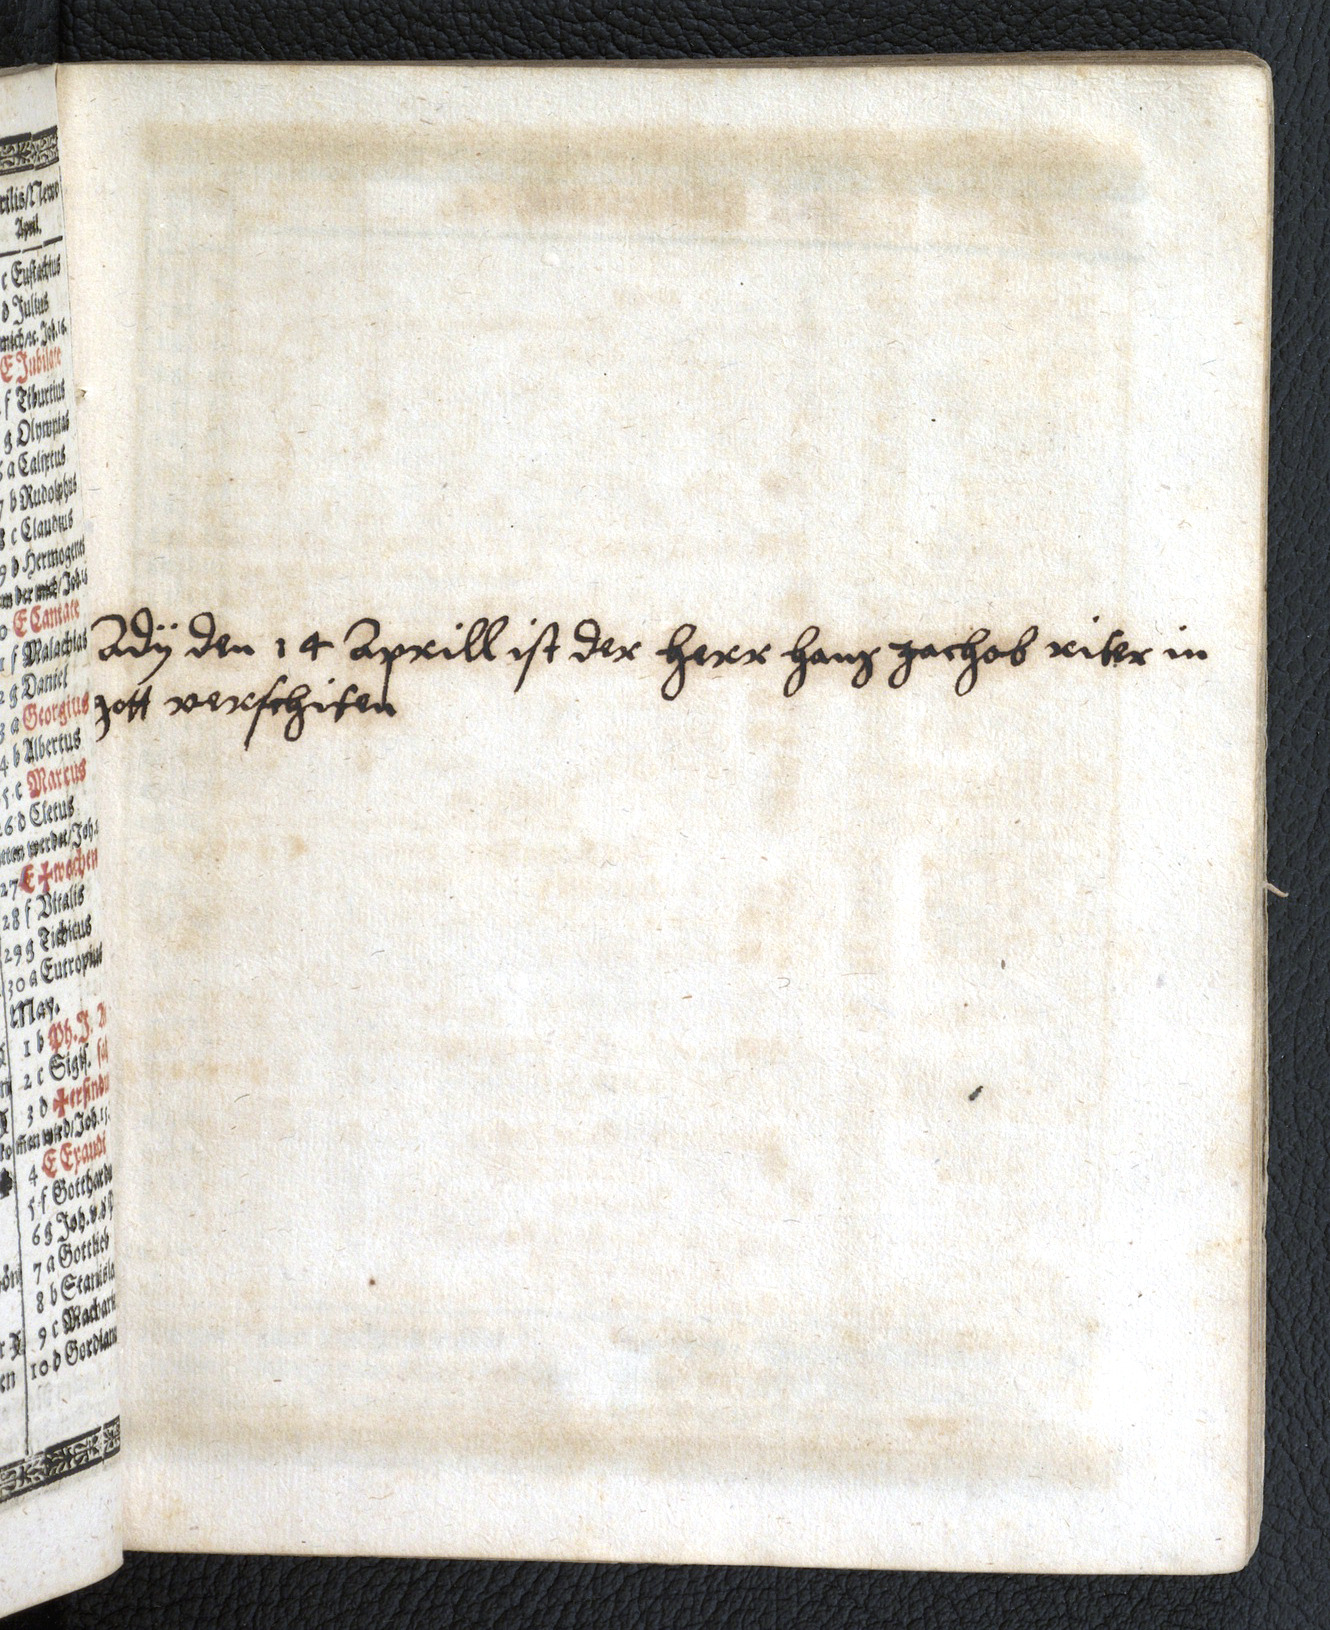 Aprill.
c Eustachius
d Julius
E Jubilate
f Tiburtius
g Olympias
a Calixtus
7 b Rudolphus
8 c Claudius
9 d Hermogenes
E Cantate
f Malachias
g Daniel
a Georgius
4 b Albertus
5 c Marcus
26 d Cletus
27 E ✠wochen
28 f Vitalis
29 g Tichicus
30 a Eutropius
May.
1 b Ph. J.
2 c Sigis.
3 d ✠erfindu
men wird/Joh. 15.
4 E Exaudi
5 f Gotthardu
6 g Joh. v. d
7 a Gottlieb
8 b Stanisla
9 c Machari
10 d Gordian
Adÿ den 14 Aprill ist der herr hans jachob riter in
gott verschiten